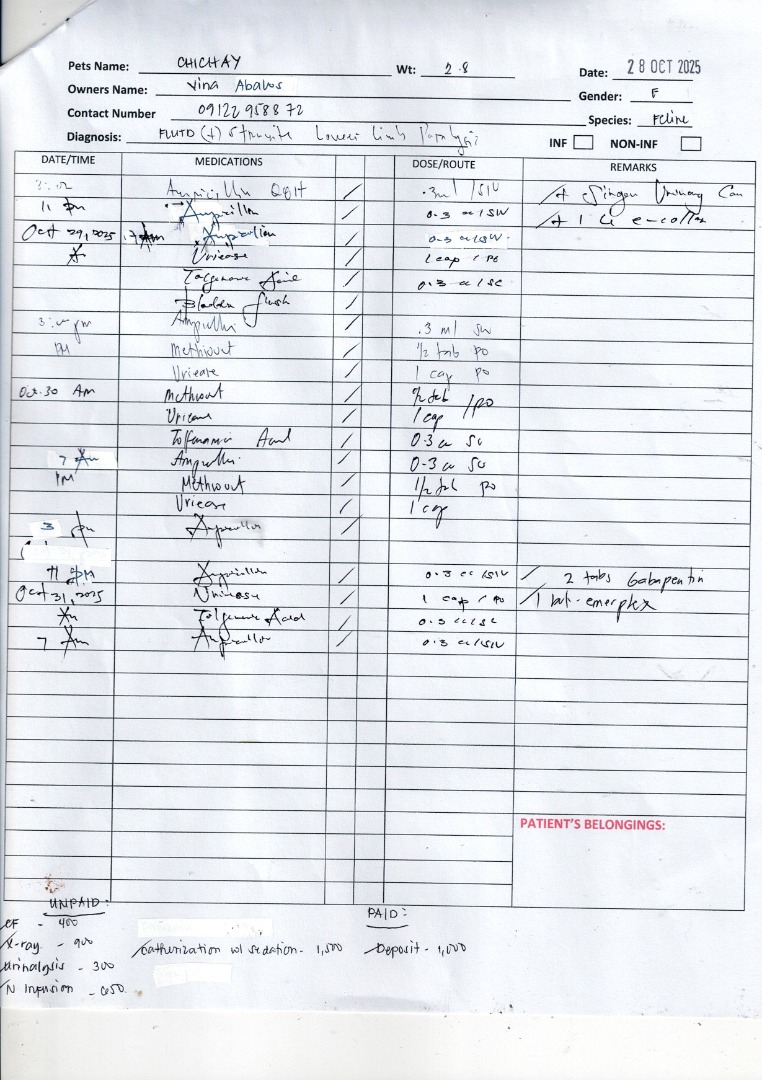 Pets Name: CHICHAY Wt: 2.8 Date: 28 OCT 2025
Owners Name: Vina Abalos Gender: F
Contact Number 09122958872 Species: Feline
Diagnosis: FLUTD (+) Struvite Lower limb Paralysis INF NON-INF
DATE/TIME MEDICATIONS DOSE/ROUTE REMARKS
Ampicillin Q8H .3ml / SIV Urinary Can
11 pm Ampicillin 0.3 cc/SIV + 1 e-collar
Oct 29, 2025 7 Am Ampicillin 0.3 cc/SIV
Am Uricase 1 cap / PO
Tolfenamic Acid 0.3 cc/SC
Bladder flush
3:00 pm Ampicillin .3 ml SIV
PM Methiovet 1/2 tab PO
Uricase 1 cap PO
Oct. 30 AM Methiovet 1/2 tab / PO
Uricase 1 cap
Tolfenamic Acid 0.3 cc SC
7 Am Ampicillin 0.3 cc
PM Methiovet 1/2 tab PO
Uricase 1 cap
3 pm Ampicillin
11 PM Ampicillin 0.3 cc/SIV 2 tabs Gabapentin
Oct 31, 2025 Uricase 1 cap / PO 1 bot - emerplex
Am Tolfenamic Acid 0.3 cc/SC
7 Am Ampicillin 0.3 cc/SIV
PATIENT'S BELONGINGS:
UNPAID: PAID:
CF - 400
X-ray - 900 Catherization w/ sedation - 1,500 Deposit - 1,000
Urinalysis - 300
IV Infusion - 650